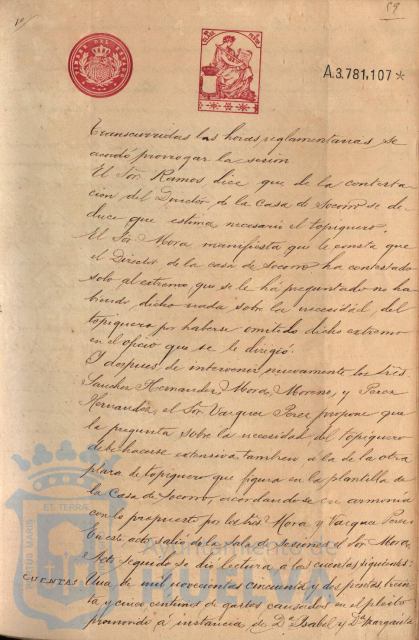 59
A.3.781,107*
Transcurridas las horas reglamentarias se
acordó prorrogar la sesion
El Sor. Ramos dice que de la contesta
cion del Director de la Casa de Socorro se de
duce que estima necesario el topiquero.
El Sor. Mora manifiesta que le consta que
el Director de la casa de socorro ha contestado
solo al extremo que se le ha preguntado no ha
biendo dicho nada sobre la necesidad del
topiquero por haberse omitido dicho extremo
en el oficio que se le dirigió.
Y despues de intervenir nuevamente los Sres.
Sanchez Hernandez, Mora, Moreno, y Perez
Hernandez, el Sor. Vazquez Perez propone que
la pregunta sobre la necesidad del topiquero
debe hacerse extensiva tambien a la de la otra
plaza de topiquero que figura en la plantilla de
la Casa de Socorro, acordandose en armonia
con lo propuesto por los Sres. Mora y Vazquez Perez.
En este acto salió de la sala de sesiones el Sor. Mora.
Acto seguido se dió lectura a las cuentas siguientes:
CUENTAS
Una de mil novecientas cincuenta y dos pesetas trein
ta y cinco centimos de gastos causados en el pleito
promovido a instancia de Dª Isabel y Dª Margarita
PORTUS MARIS ET TERRAE
Ayuntamiento de
HUELVA